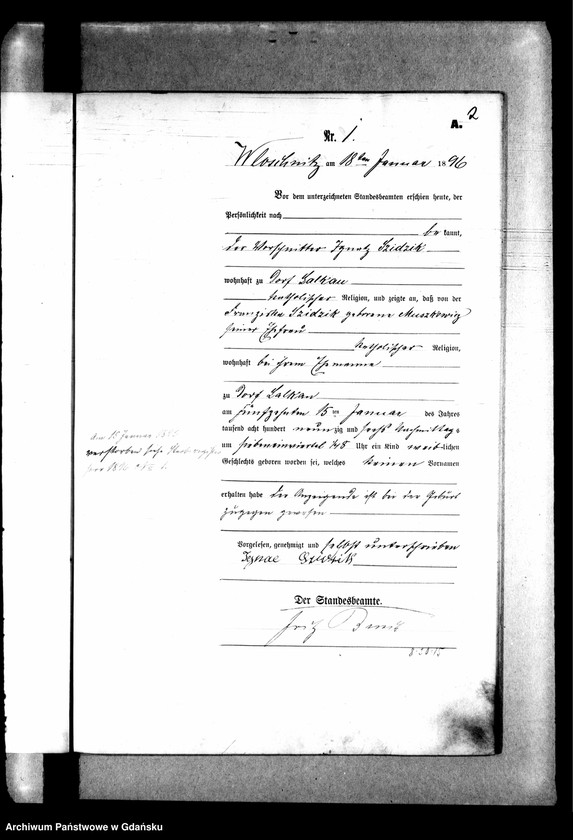 A.
2
Nr. 1.
Wloschnitz am 18ten Januar 1896
Vor dem unterzeichneten Standesbeamten erschien heute, der
Persönlichkeit nach
bekannt,
der Vorschnitter Ignatz Szidzik
wohnhaft zu Dorf Lalkau
katholischer Religion, und zeigte an, daß von der
Franziska Szidzik geborene Muszkowig
seiner Ehefrau
katholischer Religion,
wohnhaft bei ihrem Ehemanne
zu Dorf Lalkau
am fünfzehnten 15ten Januar des Jahres
tausend acht hundert neunzig und sechs Nachmittags
um sieben einviertel Uhr ein Kind weiblichen
Geschlechts geboren worden sei, welches keinen Vornamen
erhalten habe der Anzeigende ist bei der Geburt
zugegen gewesen
Vorgelesen, genehmigt und selbst unterschrieben
Ignac
Der Standesbeamte.
Fritz
verstorben siehe
Archiwum Państwowe w Gdańsku